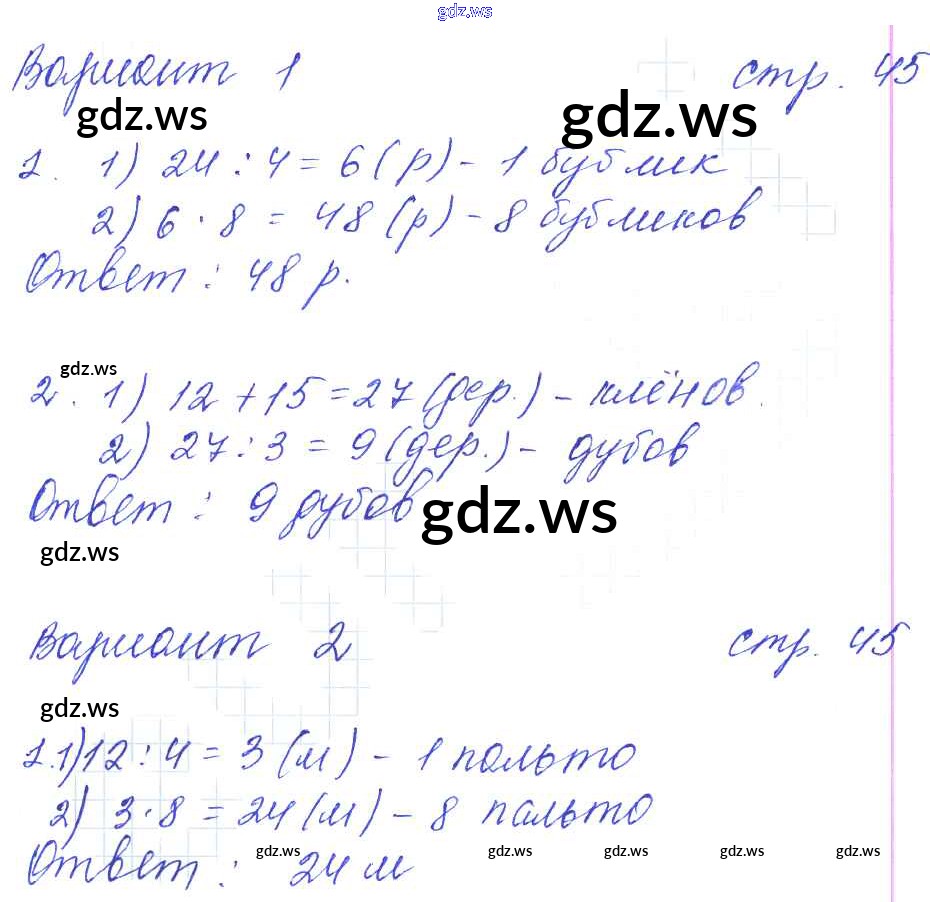 gdz.ws
Вариант 1 стр. 45
gdz.ws gdz.ws
1. 1) 24 : 4 = 6 (р) - 1 бублик
2) 6 · 8 = 48 (р) - 8 бубликов
Ответ : 48 р.
gdz.ws
2. 1) 12 + 15 = 27 (дер.) - клёнов.
2) 27 : 3 = 9 (дер.) - дубов
Ответ : 9 дубов
gdz.ws
gdz.ws
Вариант 2 стр. 45
gdz.ws
1. 1) 12 : 4 = 3 (м) - 1 пальто
2) 3 · 8 = 24 (м) - 8 пальто
gdz.ws gdz.ws gdz.ws gdz.ws gdz.ws
Ответ : 24 м